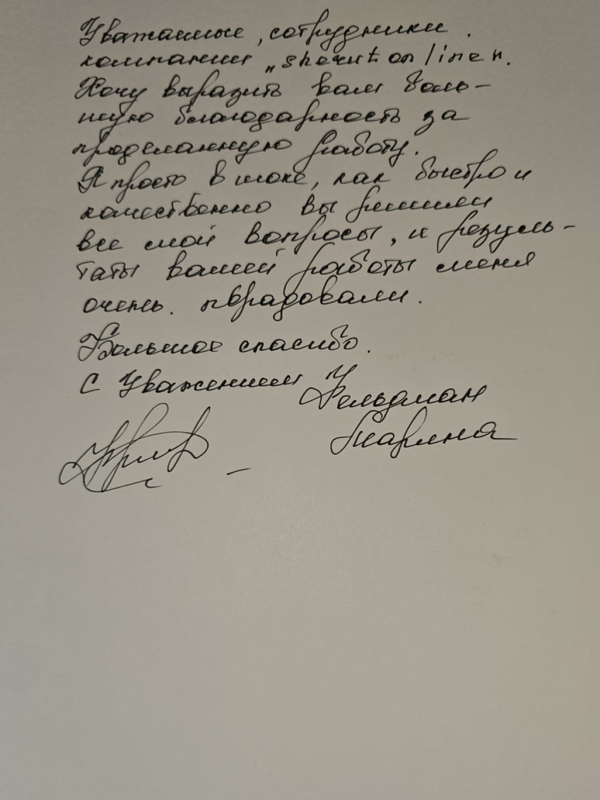 Уважаемые, сотрудники.
компании „sherut on line".
Хочу выразить вам боль-
шую благодарность за
проделанную работу.
Я просто в шоке, как быстро и
качественно вы решили
все мои вопросы, и резуль-
таты вашей работы меня
очень. порадовали.
Большое спасибо.
С Уважением Фельдман
Марина